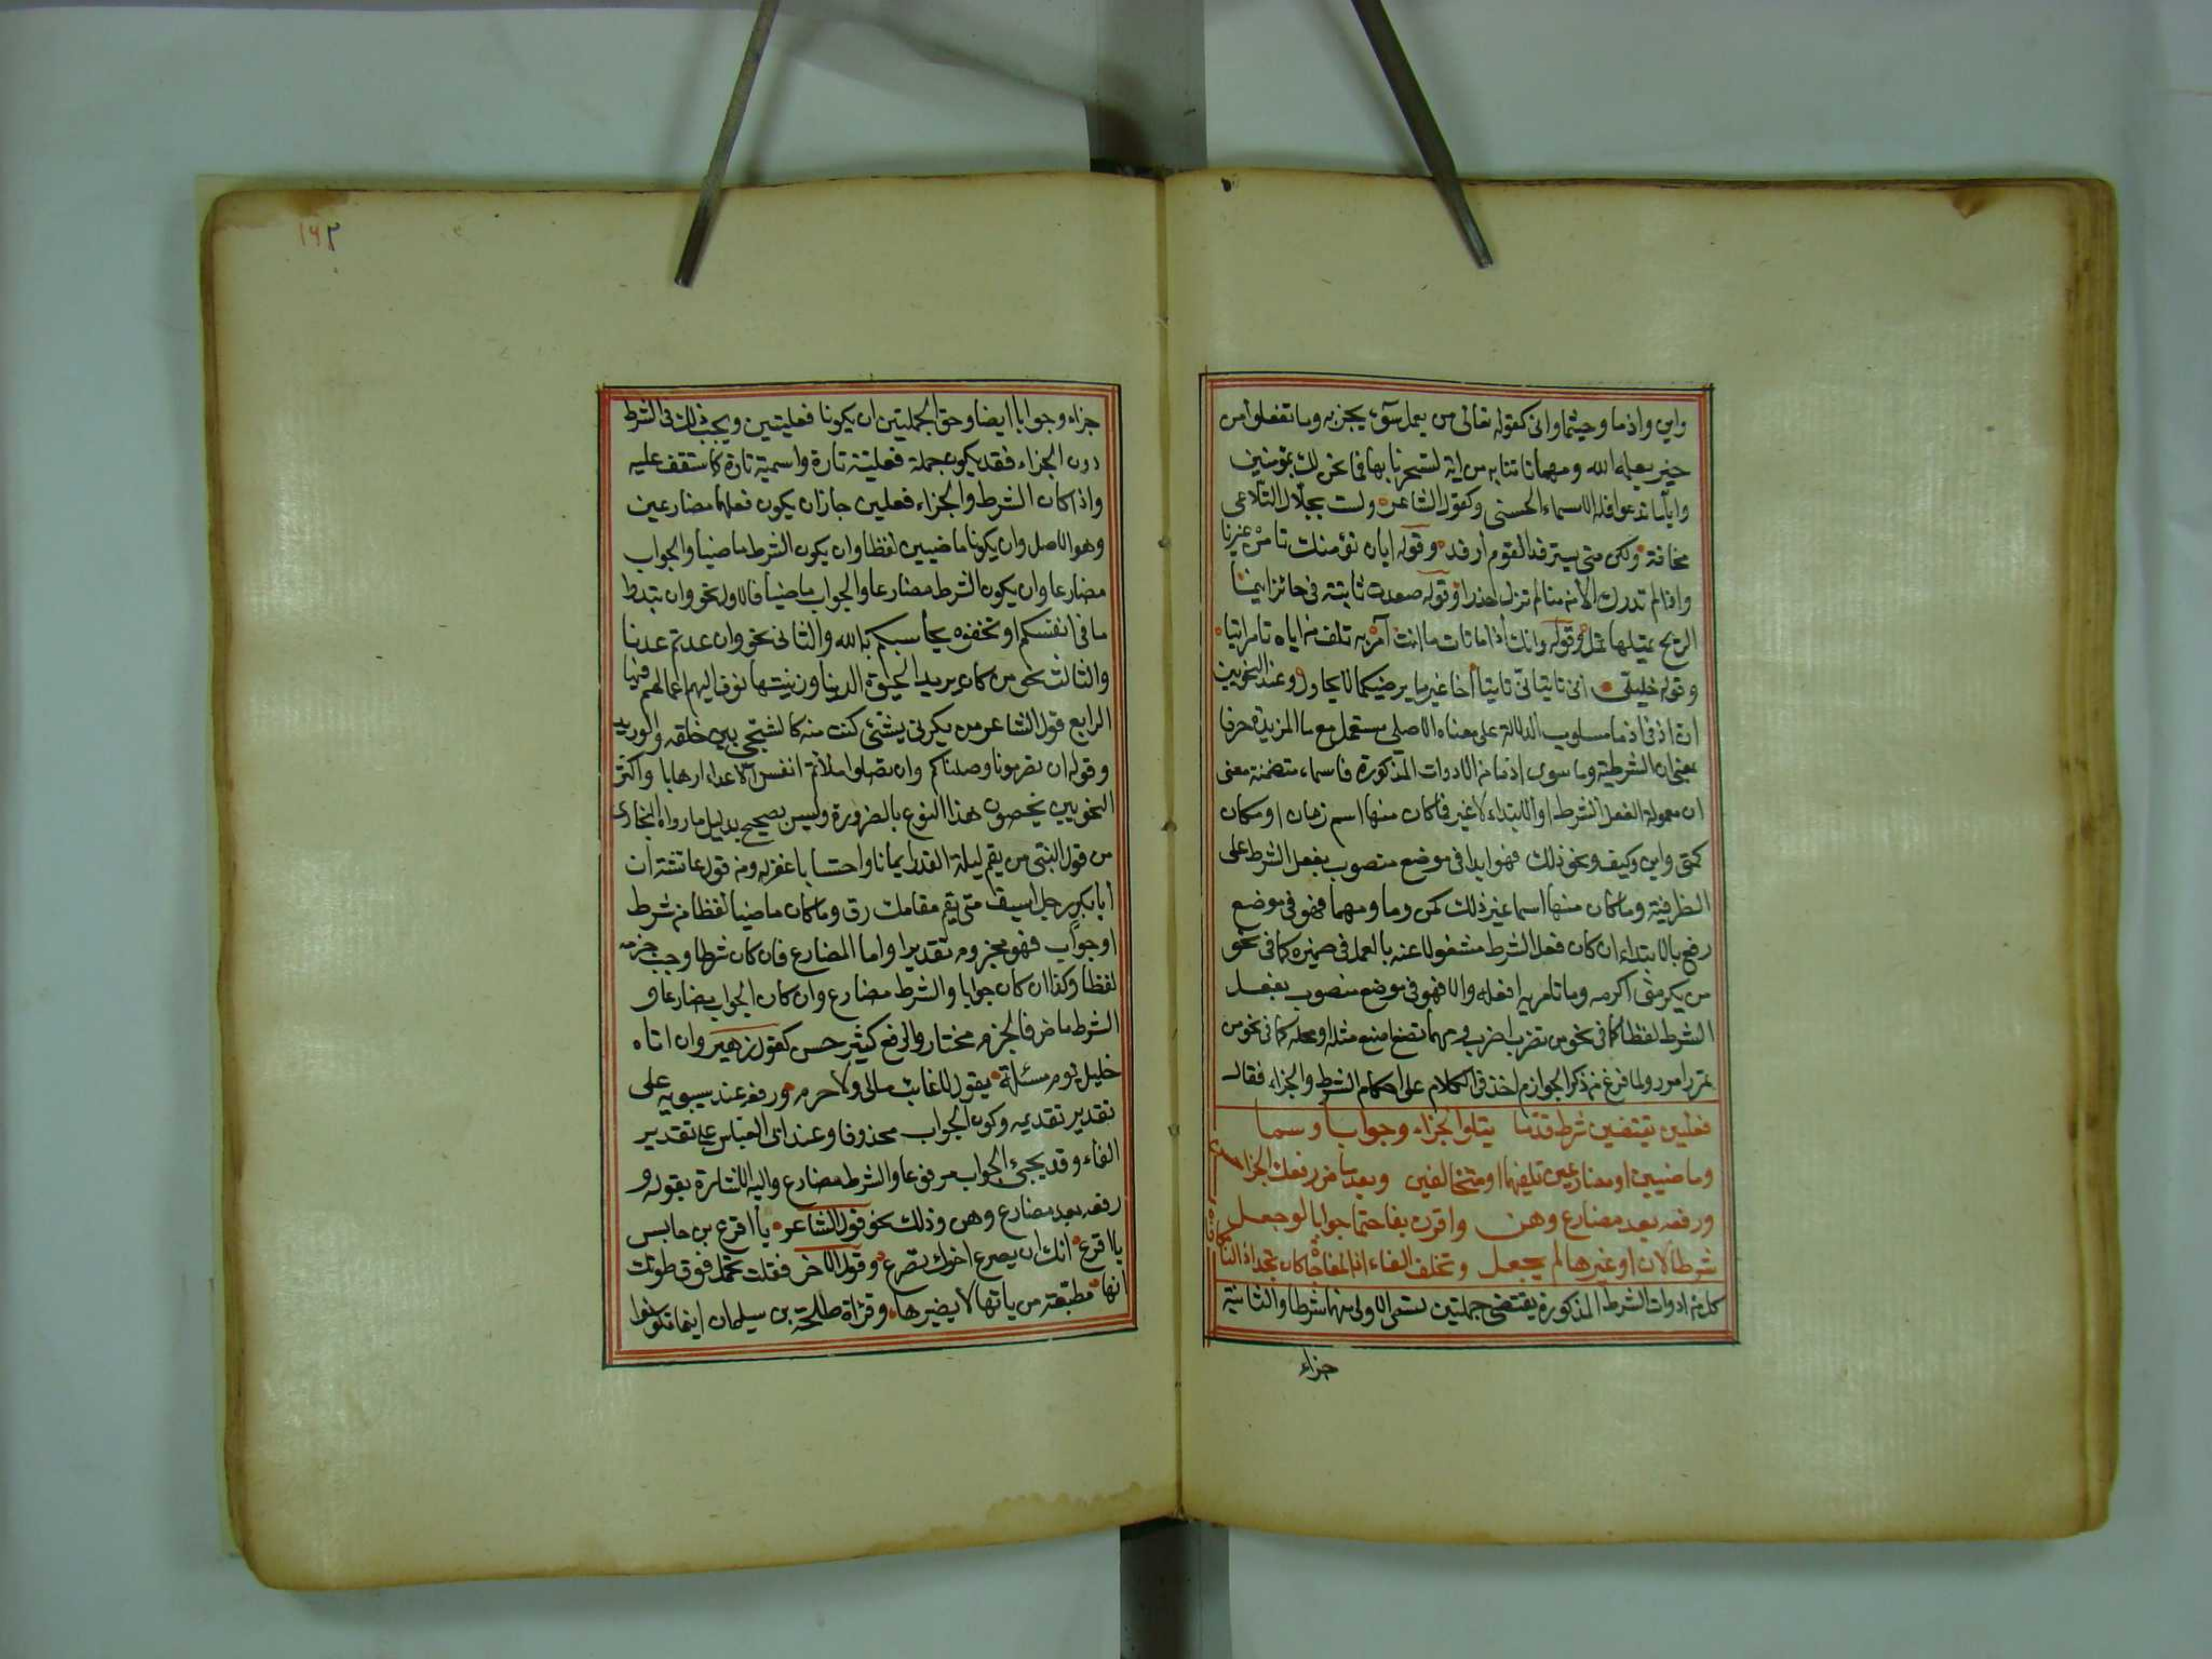 واين واذما وحيثما وانى كقوله تعالى من يعمل سوء يجز به وما تفعلوا من
خير يعلمه الله ومهما تاتنا به من اية لتسحرنا بها فما نحن لك بمومنين
واياما تدعوا فله الاسماء الحسنى وكقول الشاعر ولست بحلال التلاعى
مخافة ولكن متى يسترفد القوم ارفد وقوله ايان نؤمنك تامن غيرنا
واذا لم تدرك الامن منا لم تزل حذرا وقوله صعدت نابتة فى حائر اينما
الريح تميلها تمل وقوله وانك اذما تات ما انت آمر به تلف من اياه تامر اتيا
وقوله خليلى انى تاتيانى تاتيا اخا غير ما يرضيكما لا يحاول وعند النحويين
ان اذ فى اذما مسلوب الدلالة على معناه الاصلى مستعمل مع ما المزيدة حرفا
بمعنى ان الشرطية وما سوى اذما من الادوات المذكورة فاسماء متضمنة معنى
ان معمولة لفعل الشرط او الابتداء لا غير فما كان منها اسم زمان او مكان
كمتى واين وكيف ونحو ذلك فهو ابدا فى موضع منصوب بفعل الشرط على
الظرفية وما كان منها اسما غير ذلك كمن وما ومهما فهو فى موضع
رفع بالابتداء ان كان فعل الشرط مشغولا عنه بالعمل فى ضميره كما فى نحو
من يكرمنى اكرمه وما تامر به افعله والا فهو فى موضع منصوب بفعل
الشرط لفظا كما فى نحو من تضرب اضرب ومهما تصنع اصنع مثله او محله كما فى نحو من
تمرر امرر ولما فرغ من ذكر الجوازم اخذ فى الكلام على احكام الشرط والجزاء فقال
فعلين يقتضين شرط قدما يتلوا الجزاء وجوابا وسما
وماضيين او مضارعين تلفيهما او متخالفين وبعد ماض رفعك الجزا حسن
ورفعه بعد مضارع وهن واقرن بفا حتما جوابا لو جعل
شرطا لان او غيرها لم يجعل وتخلف الفاء اذا المفاجاة كان تجد اذا لنا مكافاة
كل من ادوات الشرط المذكورة يقتضى جملتين تسمى الاولى منهما شرطا والثانية
جزاء
١٦٢
جزاء وجوابا ايضا وحق الجملتين ان يكونا فعليتين ويجب ذلك فى الشرط
دون الجزاء فقد يكون جملة فعلية تارة واسمية تارة كما ستقف عليه
واذا كان الشرط والجزاء فعلين جاز ان يكون فعلهما مضارعين
وهو الاصل وان يكونا ماضيين لفظا وان يكون الشرط ماضيا والجواب
مضارعا وان يكون الشرط مضارعا والجواب ماضيا فالاول نحو وان تبدوا
ما فى انفسكم او تخفوه يحاسبكم به الله والثانى نحو وان عدتم عدنا
والثالث نحو من كان يريد الحيوة الدنيا وزينتها نوف اليهم اعمالهم فيها
الرابع قول الشاعر من يكدنى بشئ كنت منه كالشجى بين حلقه والوريد
وقوله ان تصرمونا وصلناكم وان تصلوا ملأتم انفس الاعداء ارهابا واكثر
النحويين يخصون هذا النوع بالضرورة وليس بصحيح بدليل ما رواه البخارى
من قول النبى من يقم ليلة القدر ايمانا واحتسابا غفر له ومنه قول عائشة ان
أبا بكر رجل اسيف متى يقم مقامك رق وما كان ماضيا لفظا من شرط
او جواب فهو مجزوم تقديرا واما المضارع فان كان شرطا وجب جزمه
لفظا وكذا ان كان جوابا والشرط مضارع وان كان الجواب مضارعا و
الشرط ماض فالجزم مختار والرفع كثير حسن كقول زهير وان اتاه
خليل يوم مسئلة يقول لا غائب مالى ولا حرم ورفعه عند سيبويه على
تقدير تقديمه وكون الجواب محذوفا وعند ابى العباس على تقدير
الفاء وقد يجئ الجواب مرفوعا والشرط مضارع واليه الاشارة بقوله و
رفعه بعد مضارع وهن وذلك نحو قول الشاعر يا اقرع بن حابس
يا اقرع انك ان يصرع اخوك تصرع وقول الاخر فقلت تحمل فوق طوقك
انها مطبقة من ياتها لا يضيرها وقراة طلحة بن سليمان اينما تكونوا